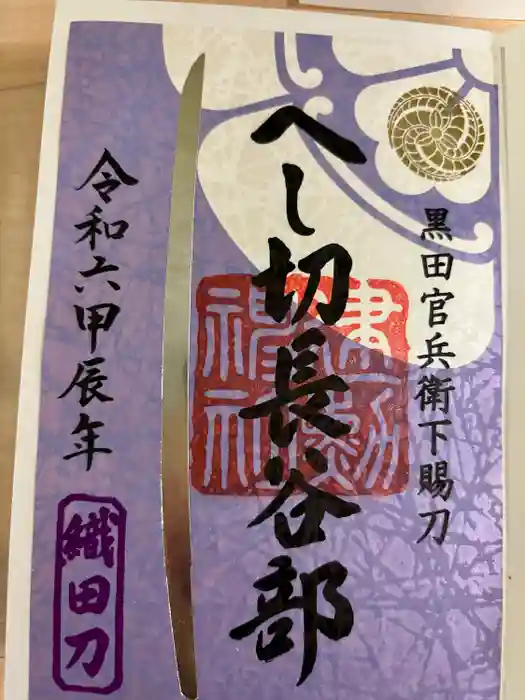 黒田官兵衛下賜刀
へし切長谷部
令和六甲辰年
織田刀